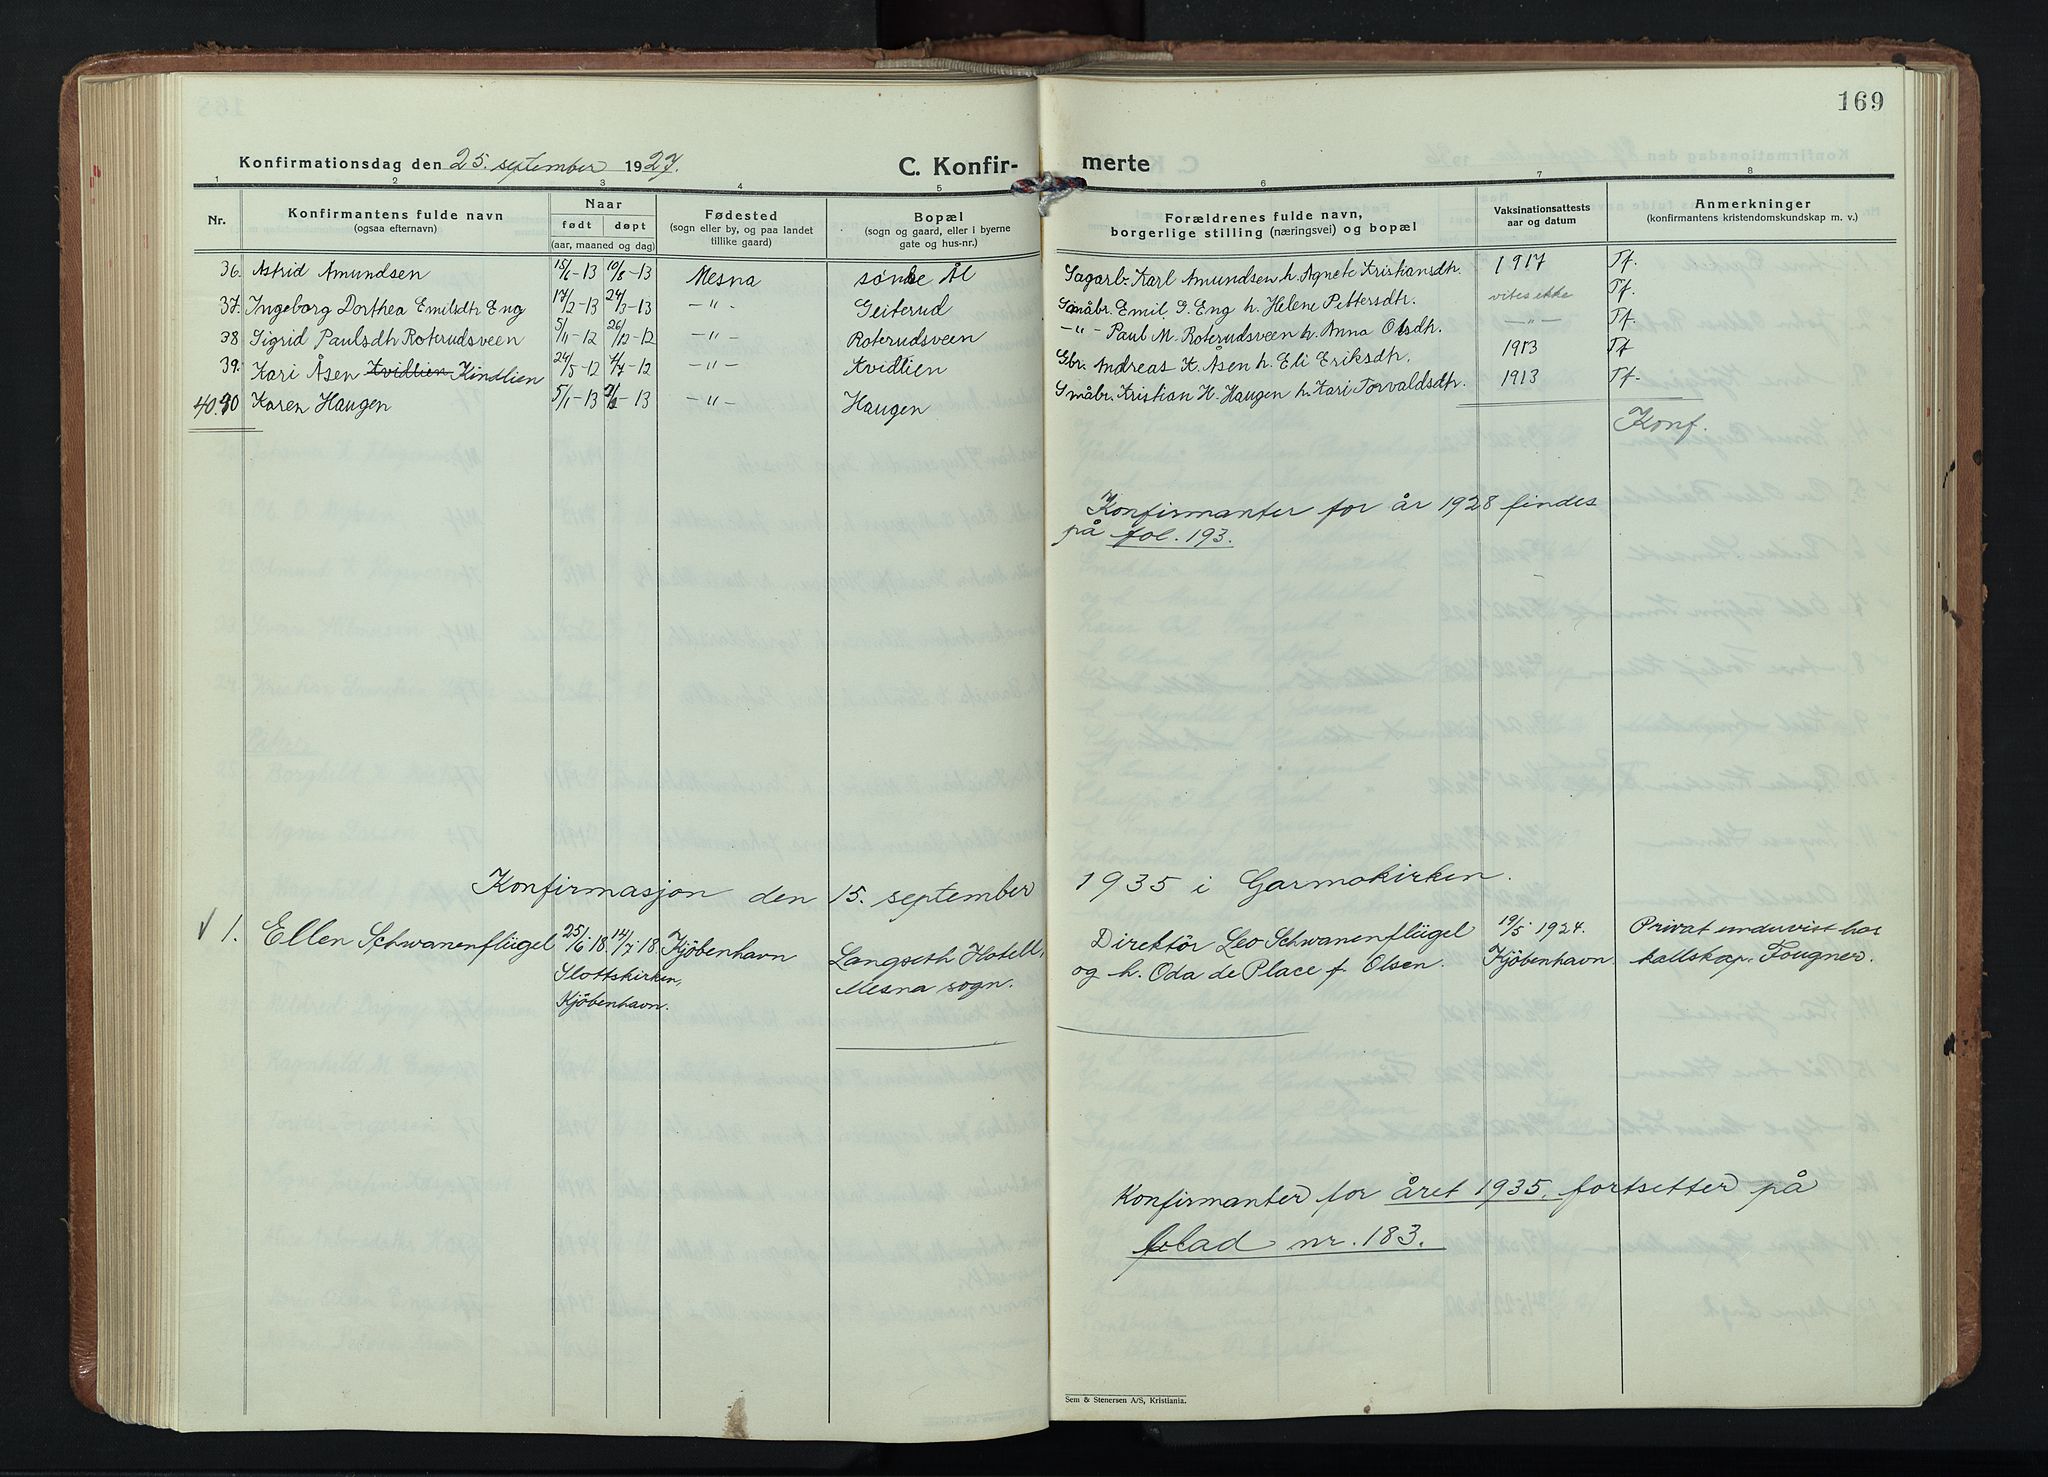 169
Konfirmationsdag den 25. september 1927.
C. Konfirmerte
1 2 3 4 5 6 7 8
Nr.
Konfirmantens fulde navn
(ogsaa efternavn)
Naar
født døpt
(aar, maaned og dag)
Fødested
(sogn eller by, og paa landet
tillike gaard)
Bopæl
(sogn og gaard, eller i byerne
gate og hus-nr.)
Forældrenes fulde navn,
borgerlige stilling (næringsvei) og bopæl
Vaksinationsattests
aar og datum
Anmerkninger
(konfirmantens kristendomskundskap m. v.)
36. Astrid Amundsen 15/6-13 10/8-13 Mesna søndre Ål Sagarb. Karl Amundsen h. Agnete Kristiansdtr. 1917 Tf.
37. Ingeborg Dorthea Emilsdtr Eng 17/2-13 24/3-13 -"- Geiterud Småbr. Emil G. Eng h. Helene Pettersdtr. vites ikke Tf.
38 Sigrid Paulsdtr Roterudsveen 5/11-12 26/12-12 -"- Roterudsveen -"- Paul M. Roterudsveen h. Anna Olsdtr. -"- Tf.
39. Kari Åsen Kvidlien Kindlien 24/5-12 4/7-12 -"- Kvidlien Gbr. Andreas K. Åsen h. Eli Eriksdtr. 1913 Tf
40. Karen Haugen 5/1-13 -13 -"- Haugen Småbr. Kristian H. Haugen h. Kari Torvaldsdtr. 1913 Tf.
Konf.
Konfirmanter for år 1928 findes
på fol. 193.
Konfirmasjon den 15. september 1935 i Garmokirken.
1. Ellen Schwanenflügel 25/6 18 14/7 18 Kjöbenhavn Langseth Hotell, Direktör Leo Schwanenflügel 19/5 1924. Privat undervist hos
Slottskirken, Mesna sogn. og h. Oda de Place f. Olsen. Kjöbenhavn. kallskap. Fougner.
Kjöbenhavn.
Konfirmanter for året 1935, fortsetter på
blad nr. 183.
Sem & Stenersen A/S, Kristiania.